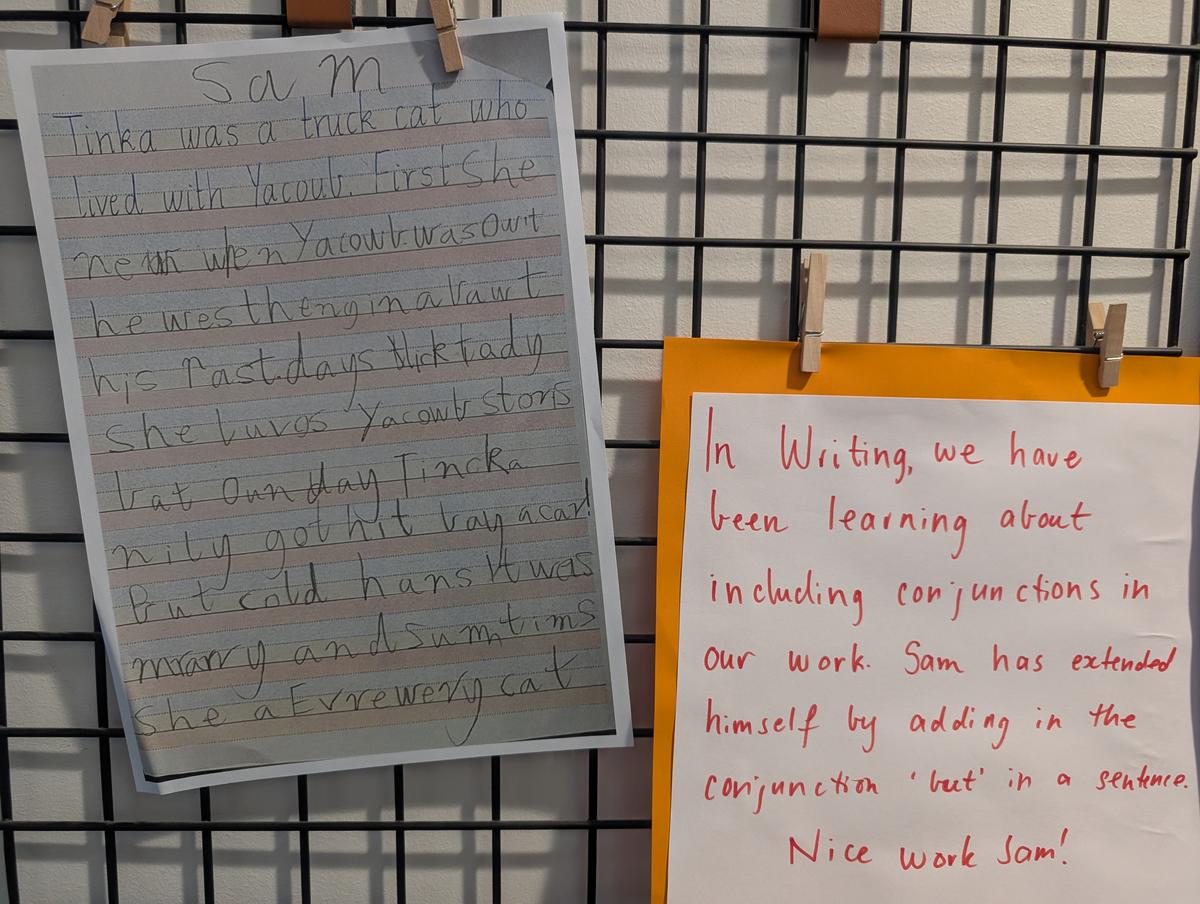 Sam
Tinka was a truck cat who
lived with Yacoub. First She
when Yacowb was Owt
he wes theng in abawt
his past.days tlick tady
she luvos Yacowb storis
bat Oun day Tincka
nily got hit bay a car!
But cold hans It was
and sumtims
she a Evrewery cat
In Writing, we have
been learning about
including conjunctions in
our work. Sam has extended
himself by adding in the
conjunction 'but' in a sentence.
Nice work Sam!